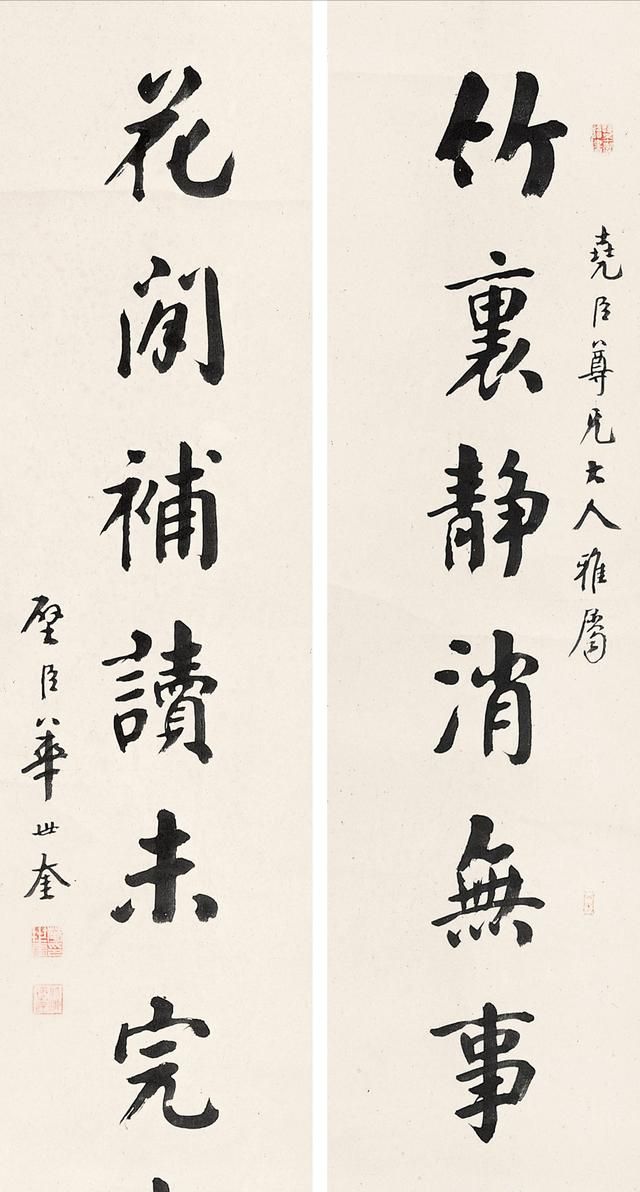 堯臣尊兄大人雅屬
竹裏静消無事
花間補讀未完
壁臣華世奎